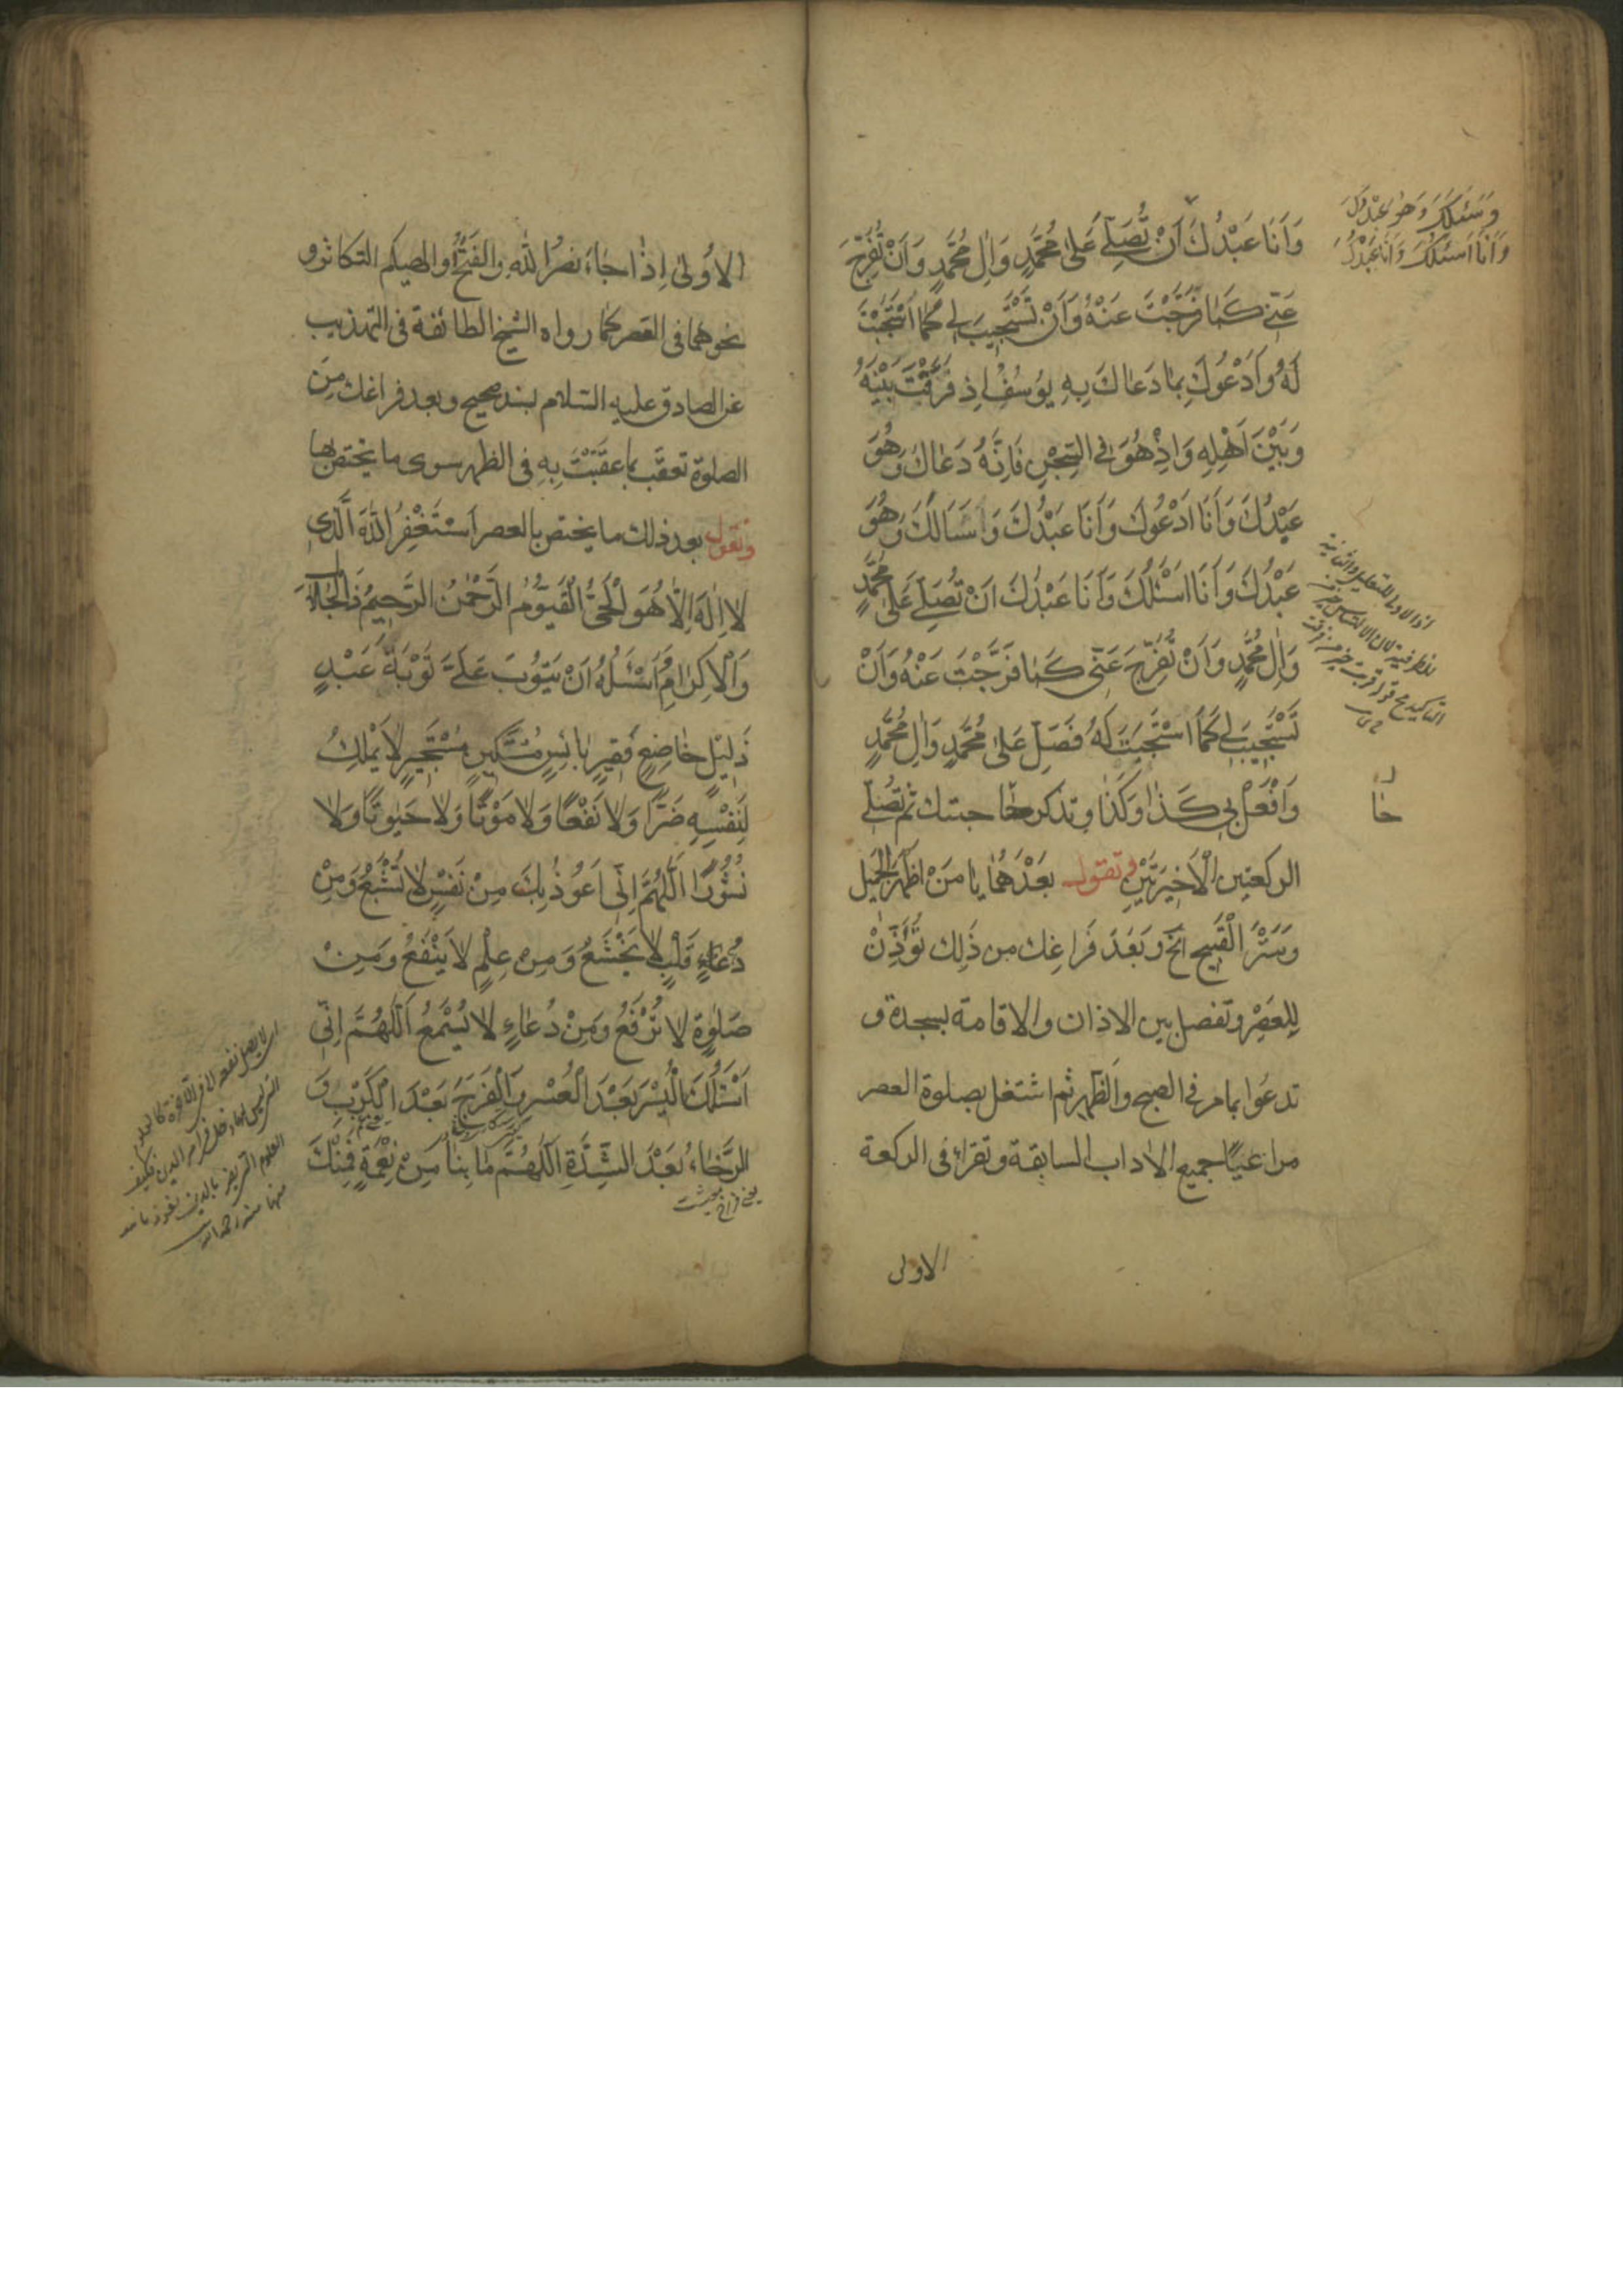 وَسَئَلَكَ وَهُوَ عَبْدُكَ
وَاَنَا اَسْئَلُكَ وَاَنَا عَبْدُكَ
وَاَنَا عَبْدُكَ اَنْ تُصَلِّيَ عَلىٰ مُحَمَّدٍ وَاٰلِ مُحَمَّدٍ وَاَنْ تُفَرِّجَ
عَنّي كَمٰا فَرَّجْتَ عَنْهُ وَاَنْ تَسْتَجيبَ لي كَمَا اسْتَجَبْتَ
لَهُ وَاَدْعُوكَ بِمٰا دَعٰاكَ بِهِ يُوسُفُ اِذْ فَرَّقْتَ بَيْنَهُ
وَبَيْنَ اَهْلِهِ وَاِذْ هُوَ فِي السِّجْنِ فَاِنَّهُ دَعٰاكَ وَهُوَ
عَبْدُكَ وَاَنَا اَدْعُوكَ وَاَنَا عَبْدُكَ وَاَسَاَلَكَ وَهُوَ
عَبْدُكَ وَاَنَا اَسْئَلُكَ وَاَنَا عَبْدُكَ اَنْ تُصَلِّيَ عَلىٰ مُحَمَّدٍ
وَاٰلِ مُحَمَّدٍ وَاَنْ تُفَرِّجَ عَنّي كَمٰا فَرَّجْتَ عَنْهُ وَاَنْ
تَسْتَجيبَ لي كَمَا اسْتَجَبْتَ لَهُ فَصَلِّ عَلىٰ مُحَمَّدٍ وَاٰلِ مُحَمَّدٍ
وَافْعَلْ بي كَذٰا وَكَذٰا وتذكر حٰاجتك ثم تُصَلّي
الركعتين الْاَخيرَتَيْنِ وتقول بَعْدَهُمٰا يٰا مَنْ اَظْهَرَ الْجَميلَ
وَسَتَرَ الْقَبيحَ الخ وَبَعْدَ فَرَاغِك من ذَلِك تُؤَذِّنْ
لِلعَصْرِ وتفصل بين الاذان والاقامة بسجدة و
تدعُوا بمامر في الصبح وَالظهر ثم اشتغل بصلوة العصر
مراعيًا جميع الاٰداب السابقة وتقراء في الركعة
الاولى
الاُولىٰ اِذٰا جٰاءَ نصرُ اللهِ والفَتْحُ او الهٰيكم التكاثر و
نحوهما في القصر كما رواه الشيخ الطائفة في التهذيب
عن الصادق عليه السلام بسند صحيح وبعد فراغك مِنَ
الصلوة تعقّب بما عقّبْتَ بِهِ في الظهر سوى ما يختص بها
وتقول بعد ذلك ما يختص بالعصر اَسْتَغْفِرُ اللهَ الَّذي
لاٰ اِلٰهَ اِلّاٰ هُوَ الْحَيُّ الْقَيُّومُ الرَّحْمٰنُ الرَّحيمُ ذَا الْجَلاٰلِ
وَالْاِكْرٰامِ وَاَسْئَلُهُ اَنْ يَتُوبَ عَلَيَّ تَوْبَةَ عَبْدٍ
ذَليلٍ خٰاضِعٍ فَقيرٍ بٰائِسٍ مِسْكينٍ مُسْتَجيرٍ لاٰ يَمْلِكُ
لِنَفْسِهِ ضَرًّا وَلاٰ نَفْعًا وَلاٰ مَوْتًا وَلاٰ حَيٰوتًا وَلاٰ
نُشُورًا اَللّٰهُمَّ اِنّي اَعُوذُ بِكَ مِنْ نَفْسٍ لاٰ تَشْبَعُ وَمِنْ
قَلْبٍ لاٰ يَخْشَعُ وَمِنْ عِلْمٍ لاٰ يَنْفَعُ وَمِنْ
صَلوٰةٍ لاٰ تُرْفَعُ وَمِنْ دُعٰاءٍ لاٰ يُسْمَعُ اَللّٰهُمَّ اِنّي
اَسْئَلُكَ الْيُسْرَ بَعْدَ الْعُسْرِ وَالْفَرَجَ بَعْدَ الْكَرْبِ وَ
الرَّخٰاءَ بَعْدَ الشِّدَّةِ اَللّٰهُمَّ مٰا بِنٰا مِنْ نِعْمَةٍ فَمِنْكَ